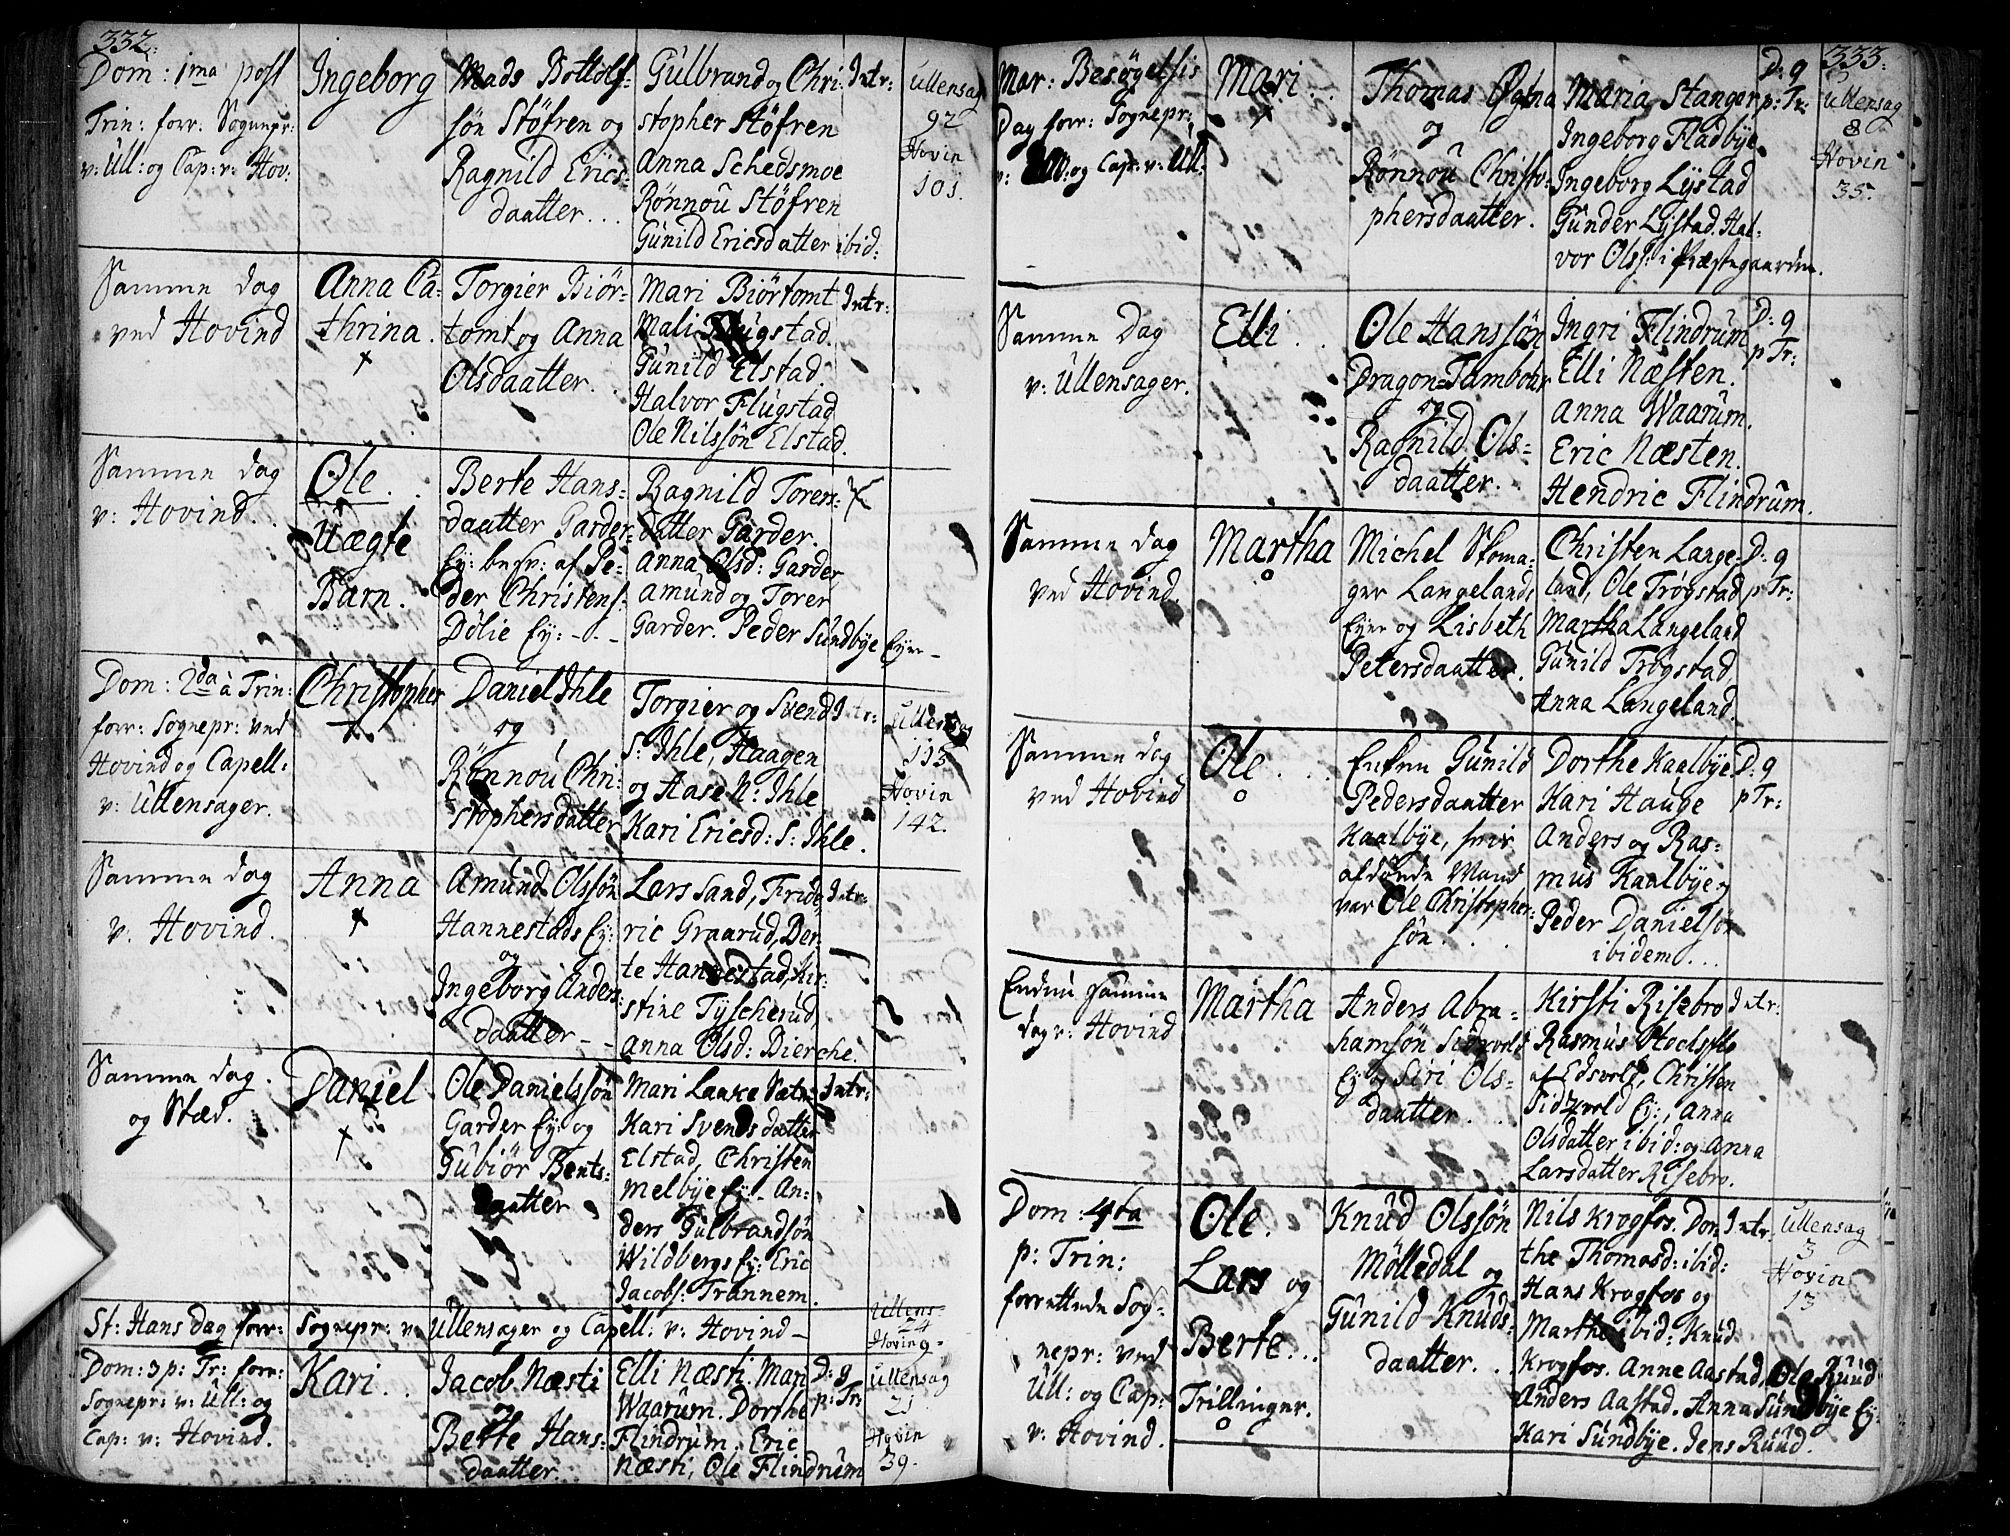 332.
Dom: 1ma post
Trin: forr: Sognepr:
v: Ull: og Cap: v: Hov:
Ingeborg
Mads Bottolf-
søn Støfren og
Ragnild Erics-
daatter...
Gulbrand og Chri-
stopher Støfren
Anna Schedsmoe
Rønnou Støfren
Gunild Ericsdatter ibid:
Intr:
Ullensag
92
Hovin
101.
Samme Dag
ved Hovind
Anna Ca-
thrina.
Torgier Biør-
tomt og Anna
Olsdaatter.
Mari Biørtomt
Mali Flugstad.
Gunild Elstad.
Halvor Flugstad
Ole Nilssøn Elstad.
Intr:
Samme Dag
v: Hovind.
Ole.
Uægte
Barn.
Berte Hans-
daatter Garder-
Ey: besv: af Pe-
der Christens:
Dølie Ey:
Ragnild Tores-
datter Garder.
Anna Olsd: Garder
Amund og Torer
Garder. Peder Sundbye Eyer
Dom: 2da à Trin:
forr: Sognepr: ved
Hovind og Capell:
v: Ullensager.
Christopher
Daniel Ihle
og
Rønnou Chri-
stophersdatter
Torgier og Svend
S: Ihle, Haagen
og Hase N: Ihle
Kari Ericsd: S: Ihle.
Intr:
Ullensag
113
Hovin
142.
Samme Dag
v. Hovind.
Anna
Amund Olssøn
Hannestads Ey:
og
Ingeborg Anders-
daatter
Lars Sand, Fride-
ric Graarud, Ber-
te Hannestad, Kir-
stine Tyscherud,
Anna Olsd: Bierche.
Intr:
Samme Dag
og Stæd.
Daniel
Ole Danielssøn
Garder Ey: og
Gubiør Bents-
daatter
Mari Laake Sætr:
Kari Svendsdatter
Elstad, Christen
Melbye Ey: An-
ders Gulbrandsøn
Wildbergs Ey: Eric
Jacobs: Trannem.
Intr:
St: Hans Dag forr: Sognepr: v: Ullensager og Capell: v: Hovind
Ullens-
24
Hovin 9.
Dom: 3 p: Tr: forr:
Sognepr: v: Ull: og
Cap: v: Hovind.
Kari.
Jacob Næsti
og
Berte Hans-
daatter
Elli Næsti. Mari
Waarum. Dorthe
Flindrum. Eric
Næsti, Ole Flindrum
D: 9
p: Tr:
Ullensag
21
Hovin
39.
333.
Mar: Besøgelsis
Dag forr: Sognepr:
v: og Cap: v: Ull.
Mari..
Thomas Øgna
og
Rønnou Christo-
phersdaatter.
Maria Stanger
Ingeborg Fladbye
Ingeborg Lystad
Gunder Lystad. Hal-
vor Olss: i Præstegaarden.
D: 9
p: Tr:
Ullensag
8
Hovin
35.
Samme Dag
v: Ullensager.
Elli..
Ole Hanssøn
Dragon-Tambour
og
Ragnild Ols-
daatter.
Ingri Flindrum
Elli Næsten.
Anna Waarum.
Eric Næsten.
Hendric Flindrum.
D: 9
p Tr:
Samme Dag
ved Hovind.
Martha
Michel Skoma-
ger Langelands
Eyer og Lisbeth
Petersdaatter.
Christen Lange-
land, Ole Trogstad
Martha Langeland
Gunild Trogstad
Anna Langeland.
D: 9
p Tr:
Samme Dag
ved Hovind
Ole...
Enken Gunild
Pedersdaatter
Kaalbye, hvis
afdøde Mand
var Ole Christopher-
søn.
Dorthe Kaalbye
Kari Hauge
Anders og Ras-
mus Kaalbye
Peder Danielsøn
ibidem...
D: 9
p Tr:
Endnu samme
dag v: Hovind
Martha
Anders Abra-
hamsøn Sidzvold
Ey: og Siri Ols-
daatter...
Kirsti Risebro
Rasmus
af Edsvold, Christen
Sidzvold Ey:, Anna
Olsdatter ibid: og Anna
Larsdatter Risebro.
Intr:
Dom: 4ta
p: Trin:
forrettede Sog-
nepr: ved
Ull: og Cap:
v: Hovind.
Ole.
Lars og
Berte...
Trillinger.
Knud Olssøn
Mølledal og
Gunild Knuds-
daatter...
Nils Krogfos. Dor-
the Thomasd: ibid:
Hans Krogfos og
Marthe ibid: Knud
Krogfos. Anne Aastad, Ole Ruud
Anders Aastad. Anna Sundbye Ey:
Kari Sundbye. Jens Ruud.
Intr:
Ullensag
3
Hovin
13